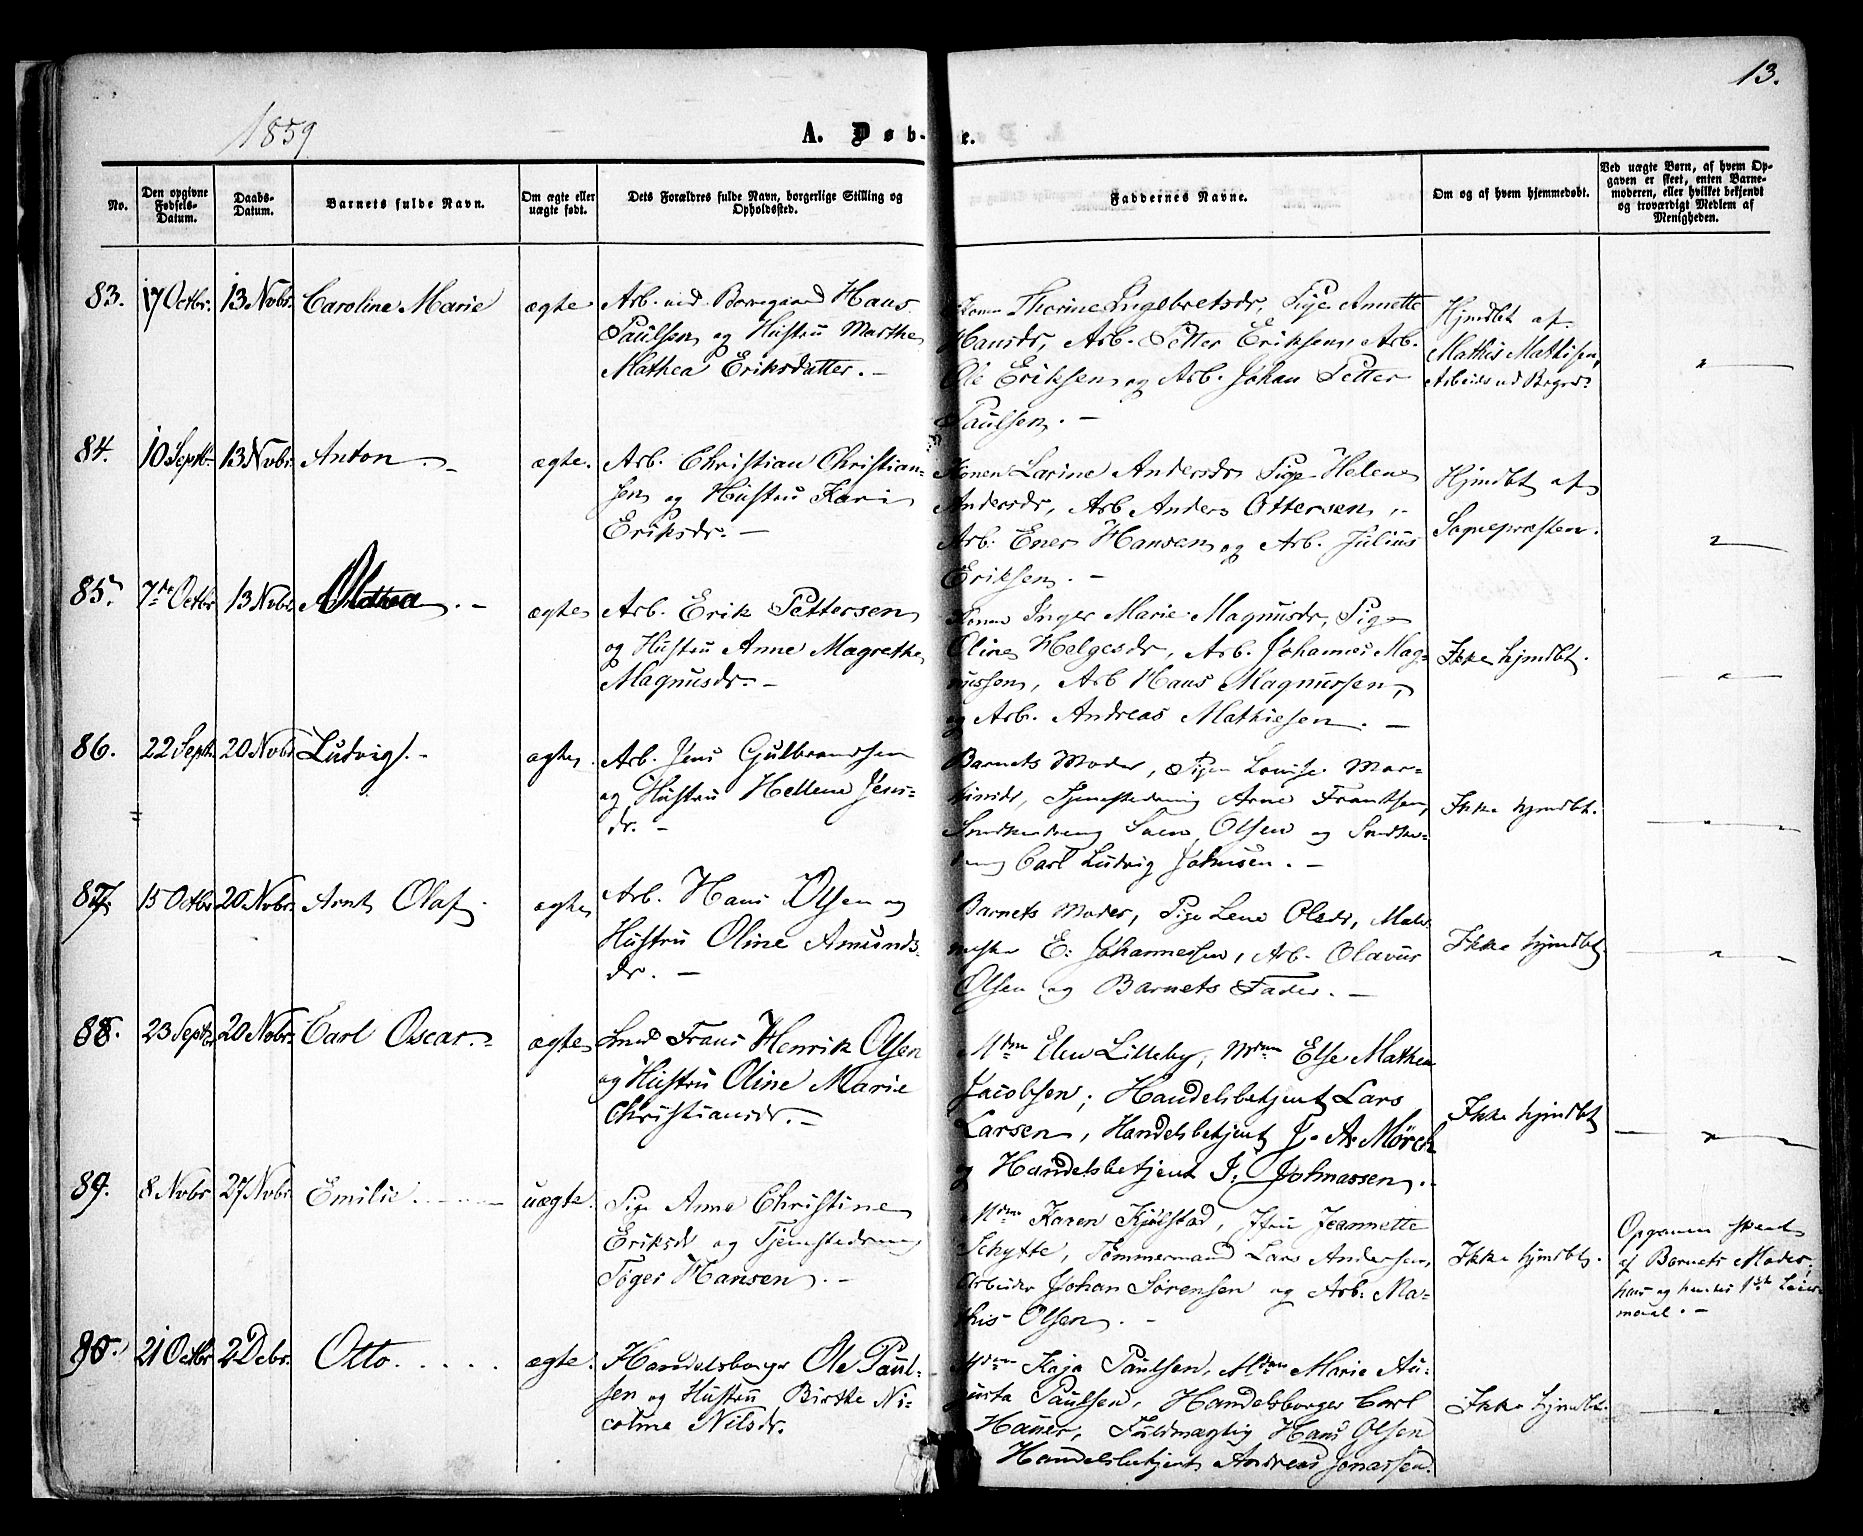 13.
1859
A. Døb- e.
No.
Den opgivne Fødsels-Datum.
Daabs-Datum.
Barnets fulde Navn.
Om ægte eller uægte født.
Dets Forældres fulde Navn, borgerlige Stilling og Opholdssted.
Faddernes Navne.
Om og af hvem hjemmedøbt.
Ved uægte Børn, af hvem Opgaven er skeet, enten Barnemoderen, eller hvilket bekjendt og troværdigt Medlem af Menigheden.
83. 17 Octbr. 13 Nvbr. Caroline Marie ægte
Arb. ved Borregaard Hans
Paulsen og Hustru Marthe
Mathea Eriksdatter. -
Konen Thorine Ingebretsdr, Pige Annette
Hansdr, Arb. Petter Eriksen, Arb.
Ole Eriksen og Arb. Johan Petter
Paulsen. -
Hjmdbt af
Mathis Mathisen,
84. 10 Septb. 13 Nvbr. Anton. - ægte.
Arb. Christian Christian-
sen og Hustru Kari
Eriksdr. -
Konen Larine Andersdr Pige Helene
Andersdr, Arb Anders Ottersen,
Arb. Ener Hansen og Arb. Julius
Eriksen. -
Hjmdbt af
Sognepræsten.
85. 7de Octbr 13 Nvbr Mathea. - ægte
Arb. Erik Pettersen
og Hustru Anne Magrethe
Magnusdr. -
Konen Inger Marie Magnusdr, Pige
Oline Helgesdr, Arb. Johannes Mag-
nussen, Arb Hans Magnussen,
og Arb. Andreas Mathiesen. -
Ikke hjmdbt.
86. 22 Septb. 20 Nvbr Ludvig. - ægte.
Arb. Jens Gulbrandsen
og Hustru Hellene Jens-
dr. -
Barnets Moder, Pigen Lovise Mar-
Tjenestedreng Arne Frantsen,
Olsen og
Carl Ludvig Johnsen. -
Ikke hjmdbt.
87. 15 Octbr 20 Nvbr. Arnt Olaf. ægte
Arb. Hans Olsen og
Hustru Oline Amunds-
dr. -
Barnets Moder, Pige Lene Olsdr,
E. Johannessen, Arb. Olavus
Olsen og Barnets Fader. -
Ikke hjmdbt.
88. 23 Septbr 20 Nvbr. Carl Oscar. - ægte
Snd Frans Henrik Olsen
og Hustru Oline Marie
Christiansdr. -
Mdm Elen Lilleby, Mdm Else Mathea
Jacobsen, Handelsbetjent Lars
Larsen, Handelsbetjent J. A. Mörch
og Handelsbetjent J. Johnassen.
Ikke hjmdbt
89. 8 Nvbr 27 Nvbr. Emilie. uægte.
Pige Anne Christine
Eriksdr og Tjenestedreng
Töger Hansen. -
Mdm Karen Kjölstad, Fru Jeannette
Schytte, Tömmermand Lars Andersen,
Arbeider Johan Sörensen og Arb. Ma-
this Olsen. -
Ikke hjmdbt.
Opgaven skeet
af Barnets Moder,
hans og hendes 1ste Leier-
maal. -
90. 21 Octbr 2 Debr. Otto. ægte.
Handelsborger Ole Paul-
sen og Hustru Birthe Ni-
coline Nilsdr.
Mdm Kaja Paulsen, Mdm Marie Au-
gusta Paulsen, Handelsborger Carl
Hauer, Fuldmægtig Hans Olsen
Handelsbetjent Andreas Jonassen.
Ikke hjmdbt.